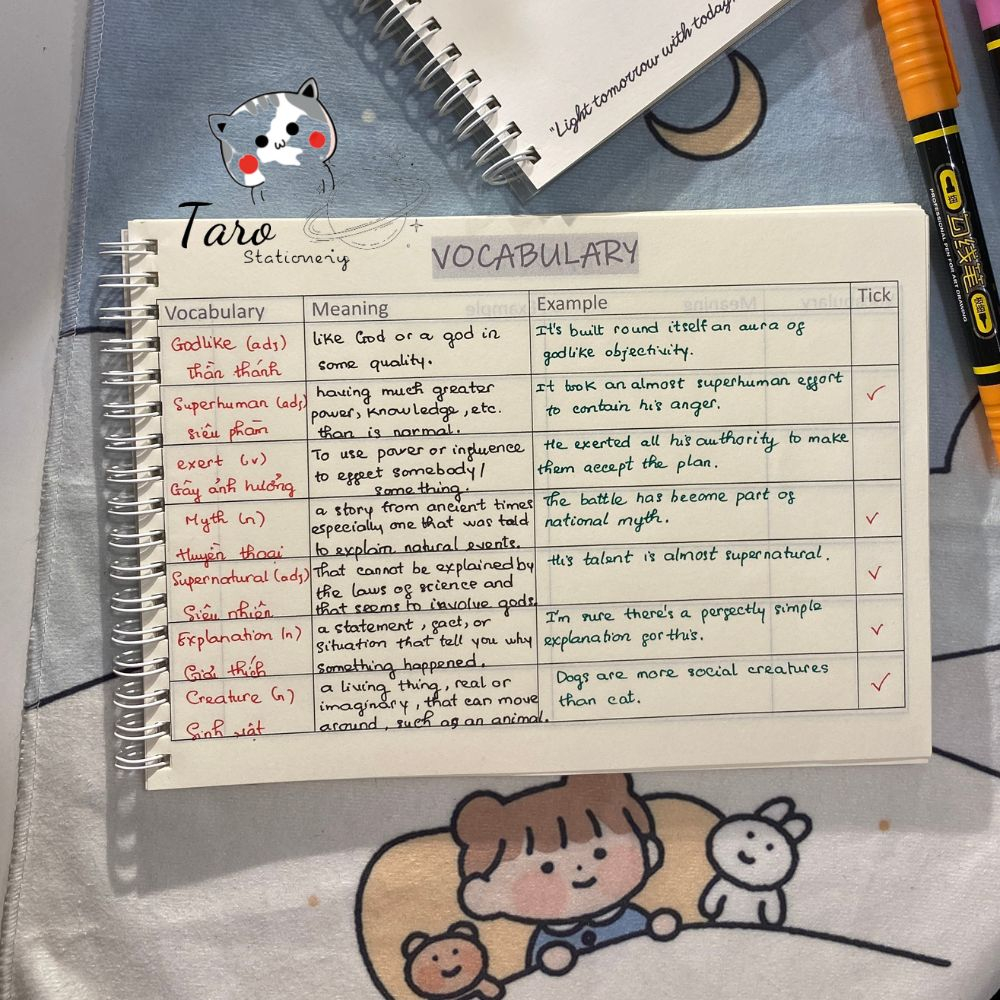 "Light tomorrow with today
Taro
Stationery
VOCABULARY
Vocabulary
Meaning
Example
Tick
Godlike (adj)
thần thánh
like God or a god in
some quality.
It's built round itself an aura of
godlike objectivity.
Superhuman (adj)
siêu phàm
having much greater
power, knowledge, etc.
than is normal.
It took an almost superhuman effort
to contain his anger.
✓
exert (v)
Gây ảnh hưởng
To use power or influence
to effect somebody/
something.
He exerted all his authority to make
them accept the plan.
Myth (n)
Huyền thoại
a story from ancient times
especially one that was told
to explain natural events.
The battle has become part of
national myth.
✓
Supernatural (adj)
Siêu nhiên
That cannot be explained by
the laws of science and
that seems to involve gods.
His talent is almost supernatural.
✓
Explanation (n)
Giải thích
a statement, fact, or
situation that tell you why
something happened.
I'm sure there's a perfectly simple
explanation for this.
✓
Creature (n)
Sinh vật
a living thing, real or
imaginary, that can move
around, such as an animal.
Dogs are more social creatures
than cat.
✓
勾线笔
PROFESSIONAL PEN FOR ART DRAWING